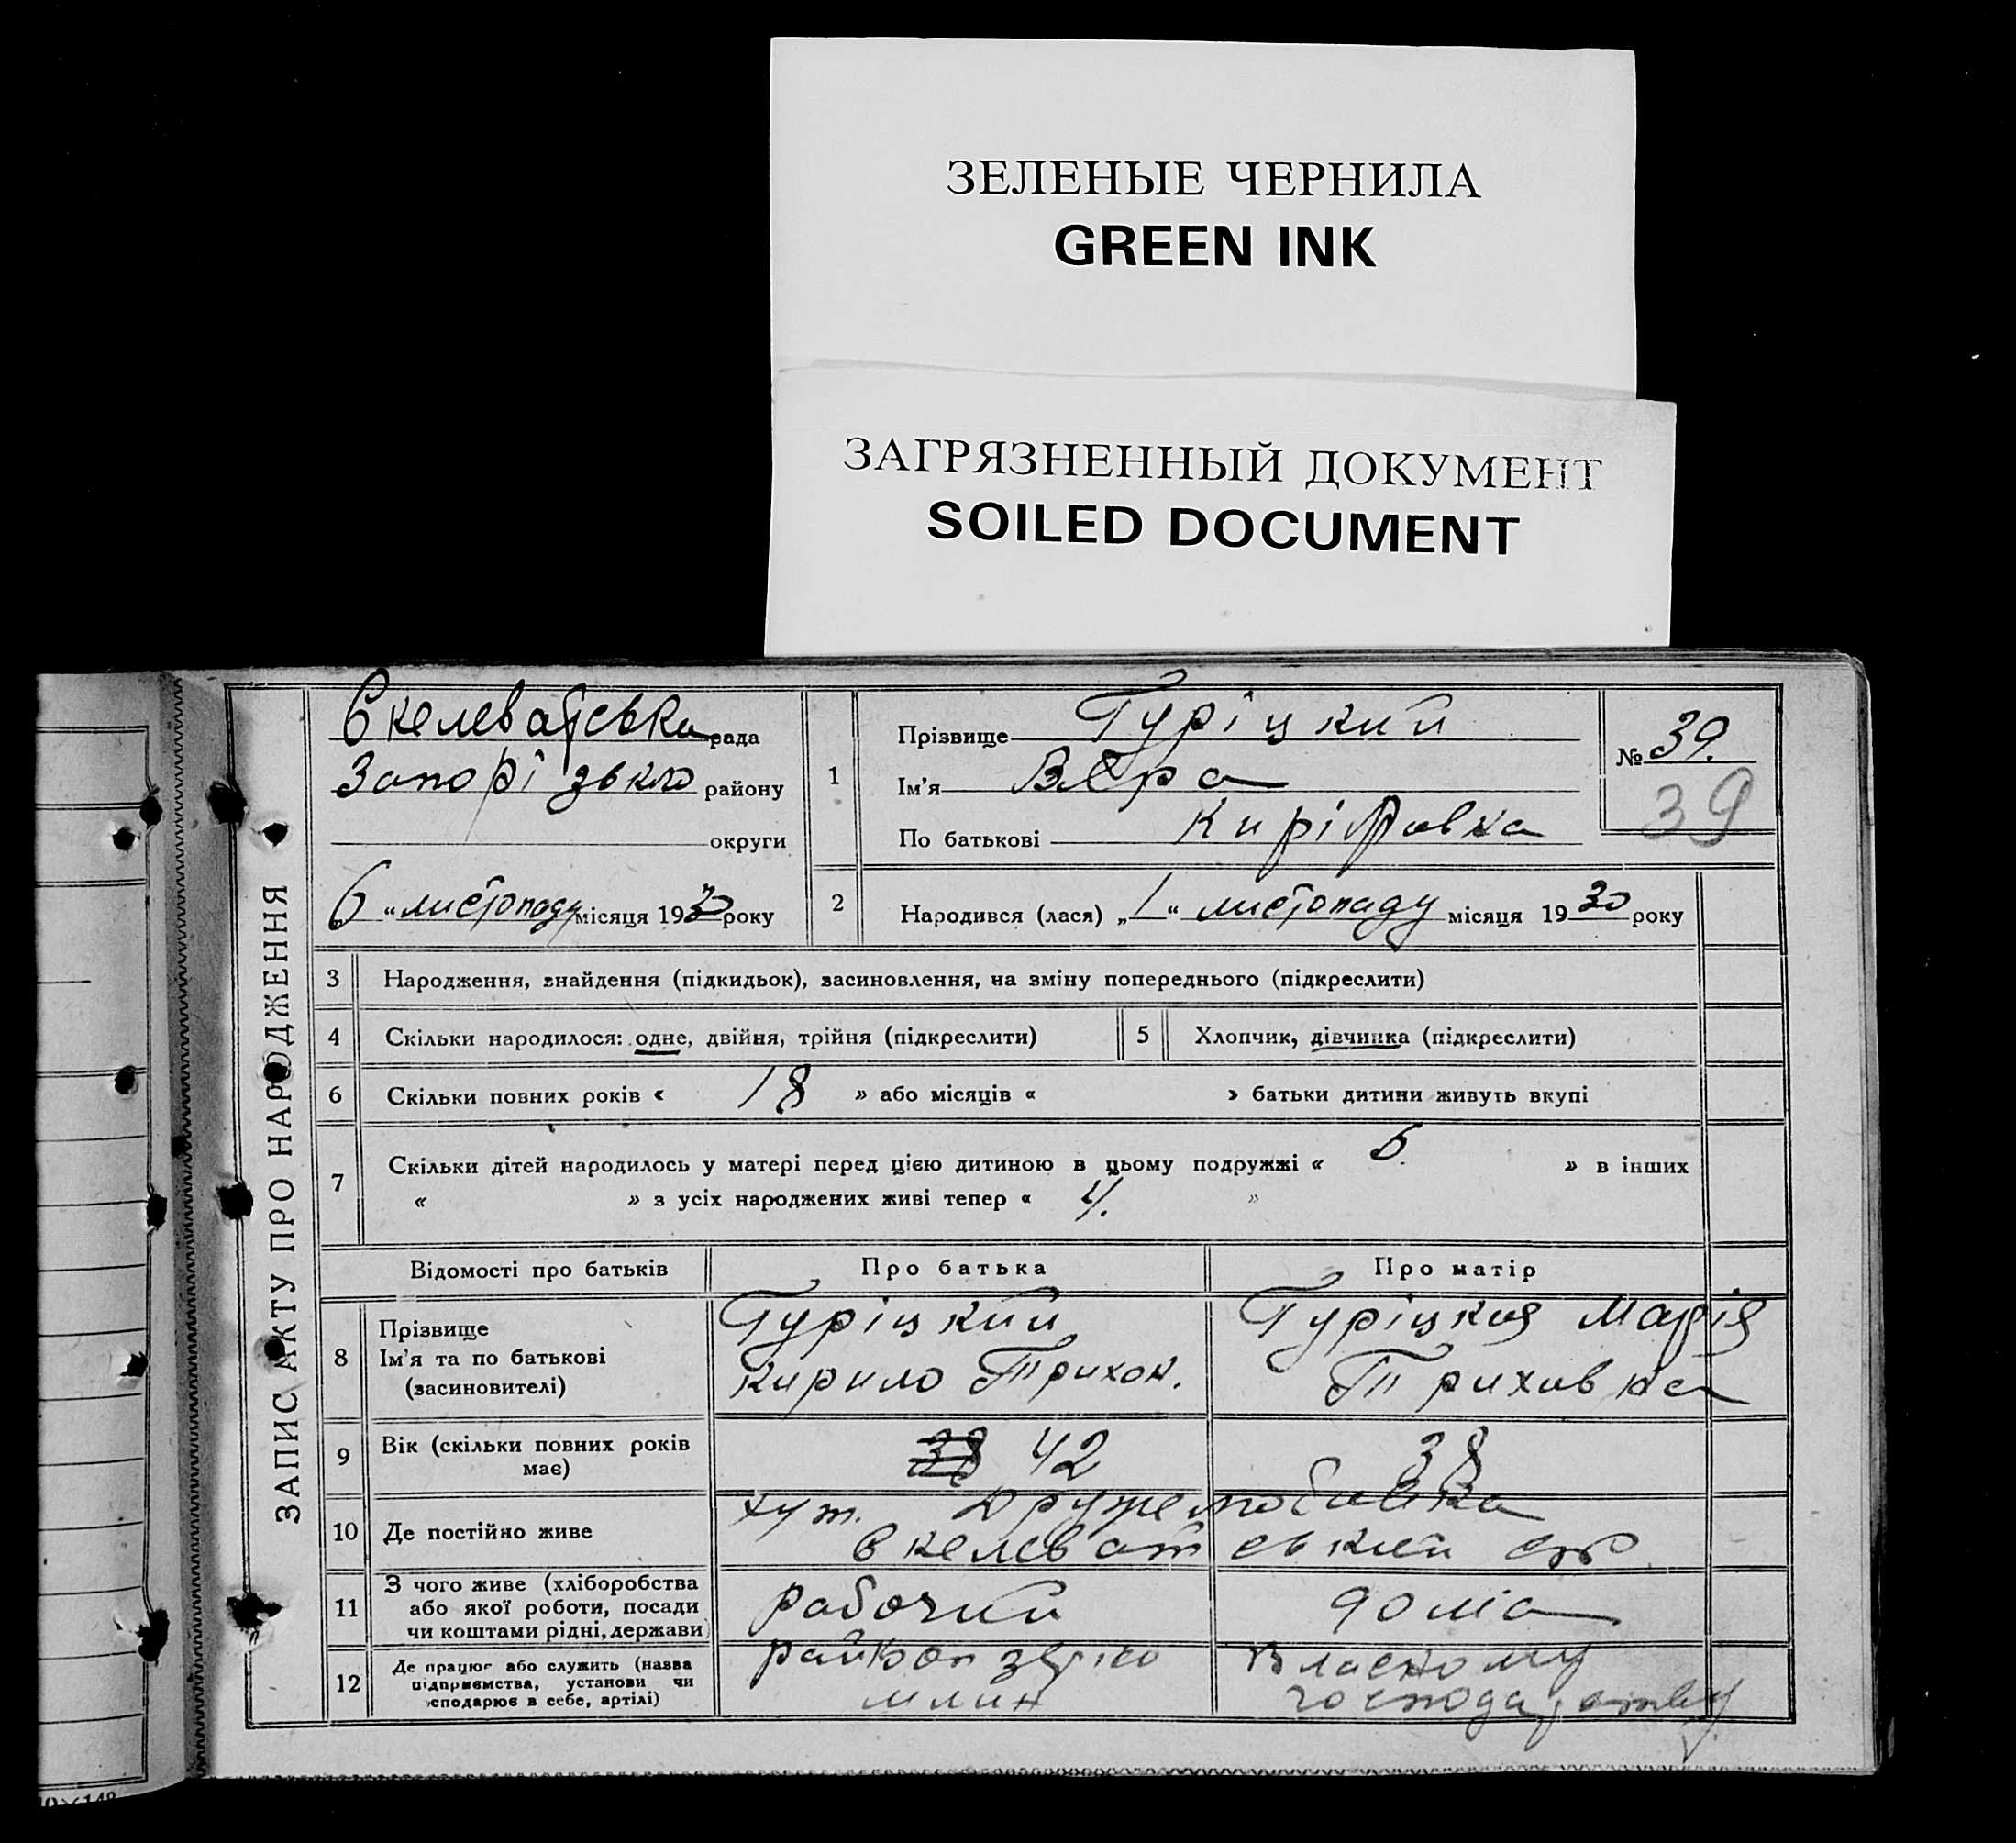 ЗЕЛЕНЫЕ ЧЕРНИЛА
GREEN INK
ЗАГРЯЗНЕННЫЙ ДОКУМЕНТ
SOILED DOCUMENT
ЗАПИС АКТУ ПРО НАРОДЖЕННЯ
Скелеватська рада
Запорізького району
округи
6 „ листопаду місяця 1930 року
1
Прізвище Гуріцкий
Ім'я Вера
По батькові Киріловна
№ 39.
39
2 Народився (лася) „1“ листопаду місяця 1930 року
3 Народження, знайдення (підкидьок), засиновлення, на зміну попереднього (підкреслити)
4 Скільки народилося: одне, двійня, трійня (підкреслити)
5 Хлопчик, дівчинка (підкреслити)
6 Скільки повних років « 18 » або місяців « » батьки дитини живуть вкупі
7 Скільки дітей народилось у матері перед цією дитиною в цьому подружжі « 5. » в інших
« » з усіх народжених живі тепер « 4. »
Відомості про батьків Про батька Про матір
8 Прізвище
Ім'я та по батькові
(засиновителі)
Гуріцкий
Кирило Трихон.
Гуріцкая Марія
Триховка
9 Вік (скільки повних років
має)
38 42
38
10 Де постійно живе
хут.
Скелеватський
11 З чого живе (хліборобства
або якої роботи, посади
чи коштами рідні, держави)
рабочий
дома
12 Де працює або служить (назва
підприємства, установи чи
господарює в себе, артілі)
млин
Власному
господарству